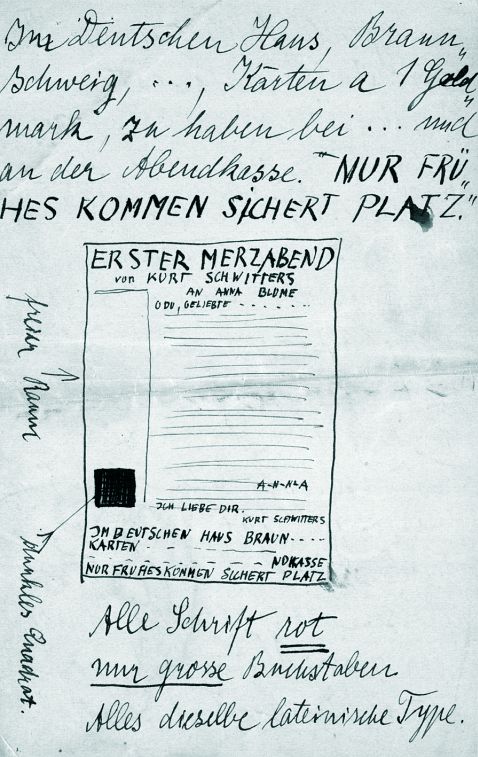 Im Deutschen Haus, Braun„
schweig, ..., Karten a 1 Gold„
mark, zu haben bei ... und
an der Abendkasse. "NUR FRÜ„
HES KOMMEN SICHERT PLATZ."
ERSTER MERZABEND
von KURT SCHWITTERS
AN ANNA BLUME
O DU, GELIEBTE - - - - - - - -
A-N-N-A
ICH LIEBE DIR.
KURT SCHWITTERS
IM DEUTSCHEN HAUS BRAUN----
KARTEN - - - - - -
- - - - - - - NDKASSE
NUR FRÜHES KOMMEN SICHERT PLATZ
freier Raum
dunkles Quadrat.
Alle Schrift rot
nur grosse Buchstaben
Alles dieselbe lateinische Type.